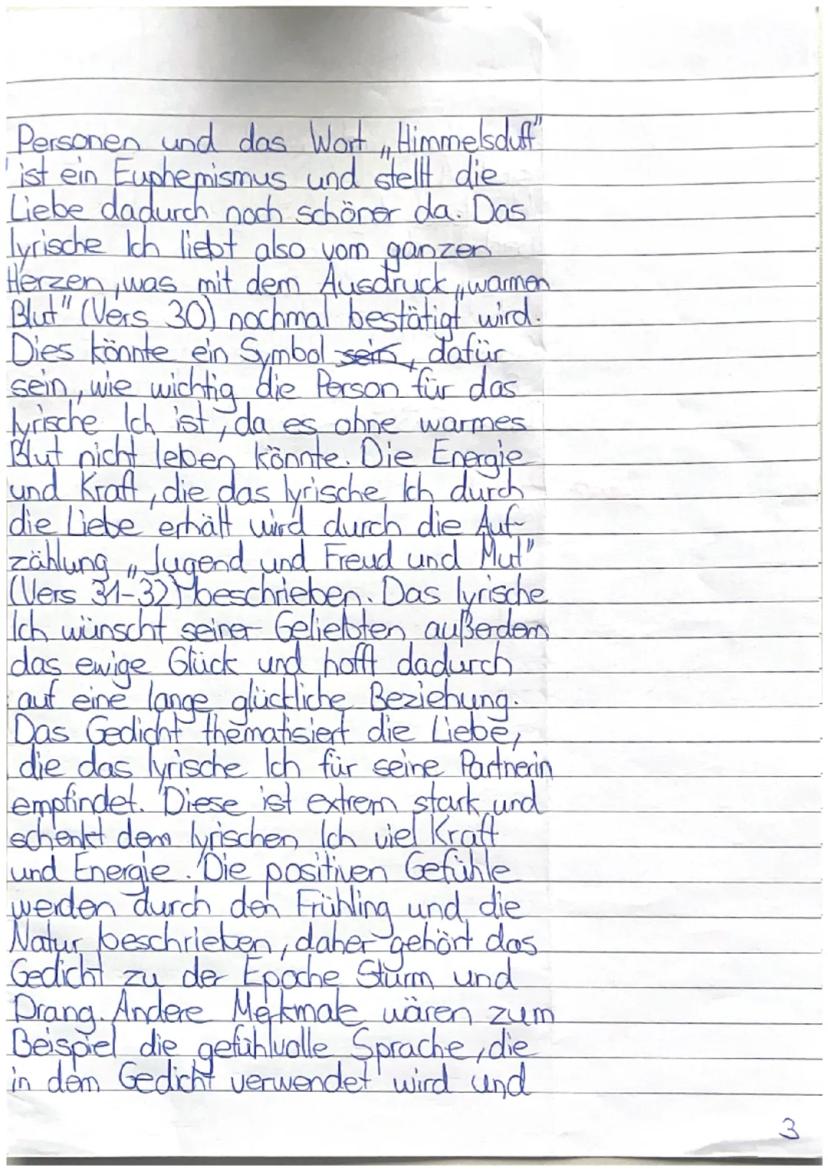 Personen und das Wort „Himmelsduft"
ist ein Euphemismus und stellt die
Liebe dadurch noch schöner da. Das
lyrische Ich liebt also vom ganzen
Herzen, was mit dem Ausdruck „warmen
Blut" (Vers 30) nochmal bestätigt wird.
Dies könnte ein Symbol sein, dafür
sein, wie wichtig die Person für das
lyrische Ich ist, da es ohne warmes
Blut nicht leben könnte. Die Energie
und Kraft, die das lyrische Ich durch
die Liebe erhält wird durch die Auf-
zählung „Jugend und Freud und Mut"
(Vers 31-32) beschrieben. Das lyrische
Ich wünscht seiner Geliebten außerdem
das ewige Glück und hofft dadurch
auf eine lange glückliche Beziehung.
Das Gedicht thematisiert die Liebe,
die das lyrische Ich für seine Partnerin
empfindet. Diese ist extrem stark und
schenkt dem lyrischen Ich viel Kraft
und Energie. Die positiven Gefühle
werden durch den Frühling und die
Natur beschrieben, daher gehört das
Gedicht zu der Epoche Sturm und
Drang. Andere Merkmale wären zum
Beispiel die gefühlvolle Sprache, die
in dem Gedicht verwendet wird und
3